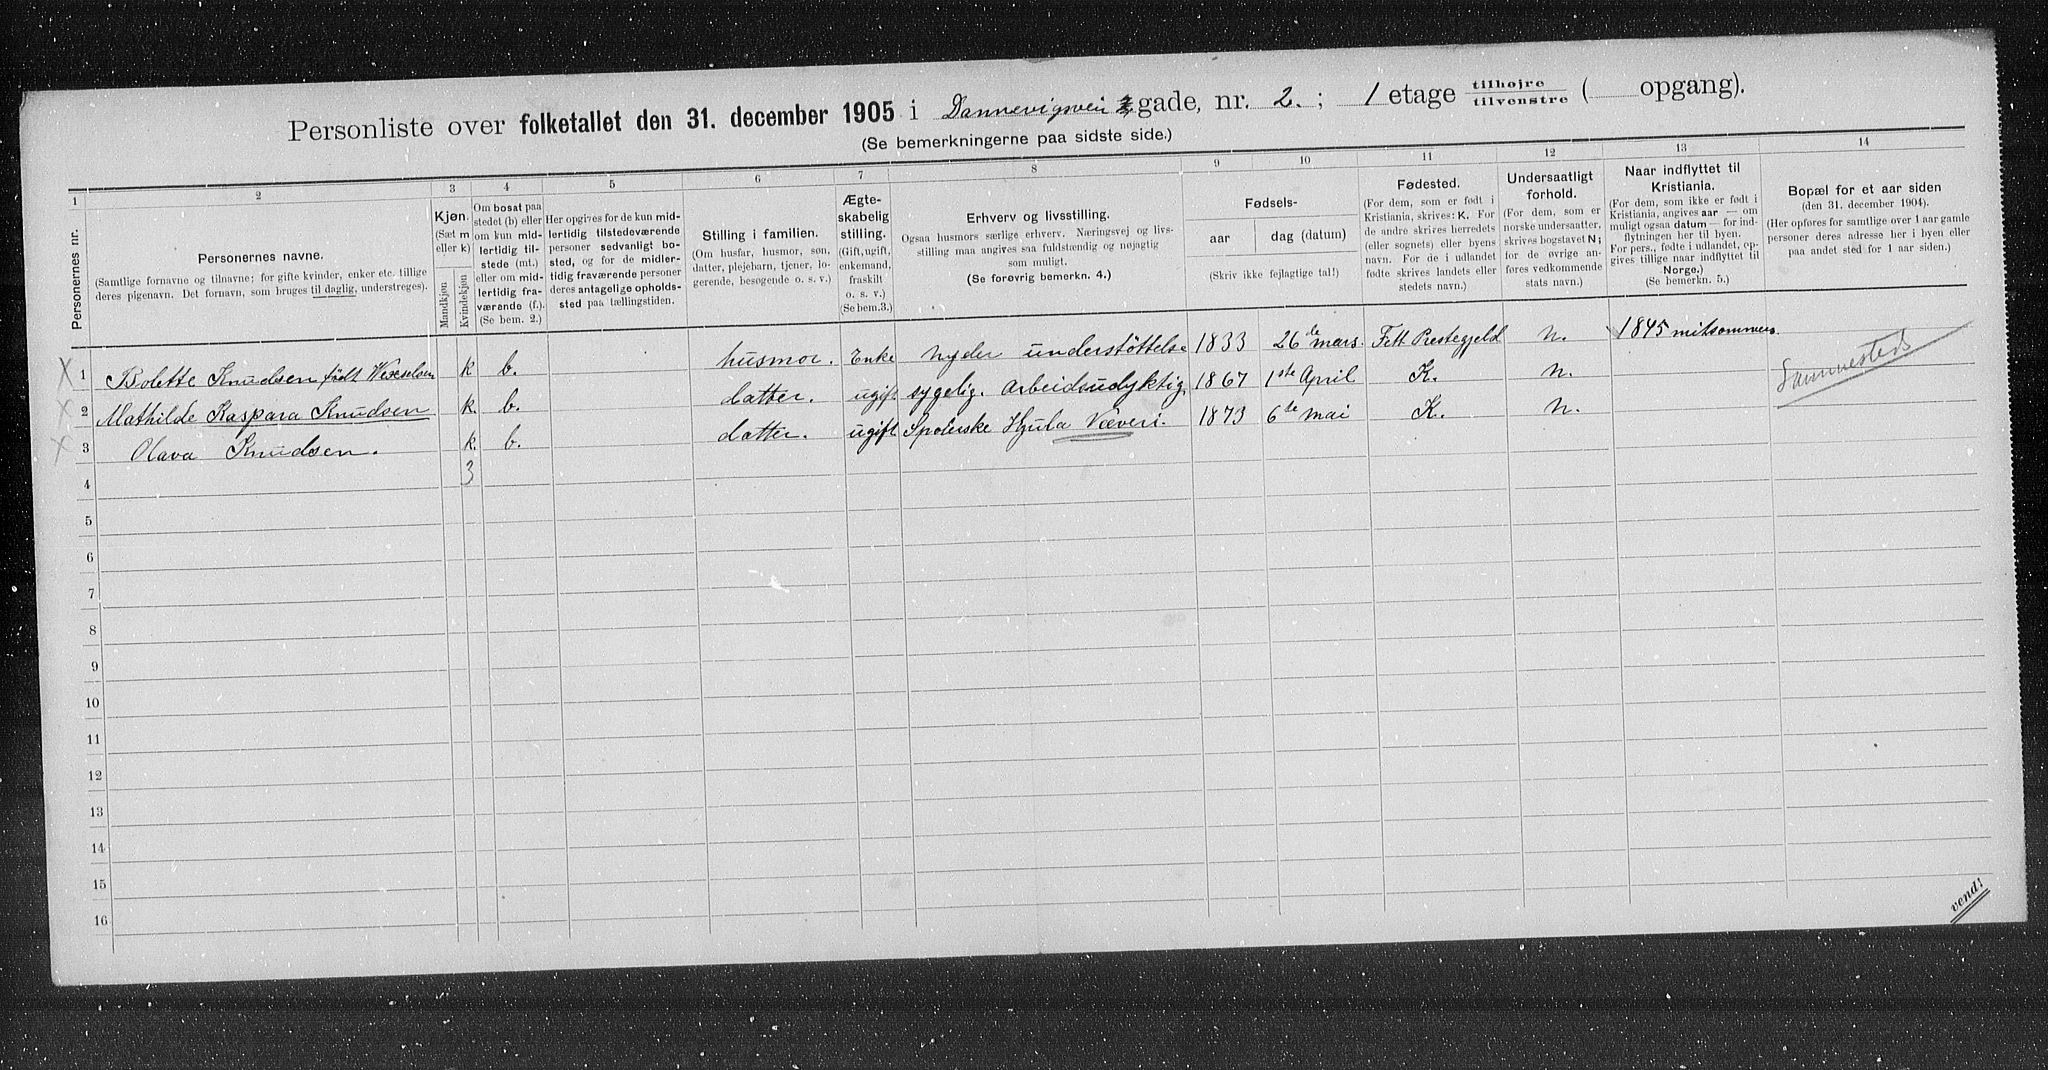 Personliste over folketallet den 31. december 1905 i Dannevigsvei gade, nr. 2. ; 1 etage tilhøjre / tilvenstre ( opgang).
(Se bemerkningerne paa sidste side.)
1 2 3 4 5 6 7 8 9 10 11 12 13 14
Personernes nr.
Personernes navne.
(Samtlige fornavne og tilnavne; for gifte kvinder, enker etc. tillige
deres pigenavn. Det fornavn, som bruges til daglig, understreges).
Kjøn.
(Sæt m
eller k)
Mandkjøn
Kvindekjøn
Om bosat paa
stedet (b) eller
om kun mid-
lertidig til-
stede (mt.)
eller om mid-
lertidig fra-
værende (f.).
(Se bem. 2.)
Her opgives for de kun mid-
lertidig tilstedeværende
personer sedvanligt bo-
sted, og for de midler-
tidig fraværende personer
deres antagelige opholds-
sted paa tællingstiden.
Stilling i familien.
(Om husfar, husmor, søn,
datter, plejebarn, tjener, lo-
gerende, besøgende o. s. v.)
Ægte-
skabelig
stilling.
(Gift, ugift,
enkemand,
fraskilt
o. s. v.)
(Se bem.3.)
Erhverv og livsstilling.
Ogsaa husmors særlige erhverv. Næringsvej og livs-
stilling maa angives saa fuldstændig og nøjagtig
som muligt.
(Se forøvrig bemerkn. 4.)
Fødsels-
aar
dag (datum)
(Skriv ikke fejlagtige tal!)
Fødested.
(For dem, som er født i
Kristiania, skrives: K. For
de andre skrives herredets
(eller sognets) eller byens
navn. For de i udlandet
fødte skrives landets eller
stedets navn.)
Undersaatligt
forhold.
(For dem, som er
norske undersaatter,
skrives bogstavet N;
for de øvrige an-
føres vedkommende
stats navn.)
Naar indflyttet til
Kristiania.
(For dem, som ikke er født i
Kristiania, angives aar — om
muligt ogsaa datum — for ind-
flytningen her til byen.
For pers., fødte i udlandet, op-
gives tillige naar indflyttet til
Norge.)
(Se bemerkn. 5.)
Bopæl for et aar siden
(den 31. december 1904).
(Her opføres for samtlige over 1 aar gamle
personer deres adresse her i byen eller
paa andet sted for 1 aar siden.)
X 1 Bolette Knudsen født Wesselsen k b. husmor. Enke nyder understöttelse 1833 26de mars. Fett Prestegjeld N. 1845 mitsommers.
X 2 Mathilde Kaspara Knudsen k. b. datter. ugift sygelig. Arbeidsudyktig 1867 1ste April K. N. Sammesteds
X 3 Olava Knudsen. k. b. datter. ugift Spolerske Hjula Væveri. 1873 6de mai K. N.
4 3
5
6
7
8
9
10
11
12
13
14
15
16
vend!